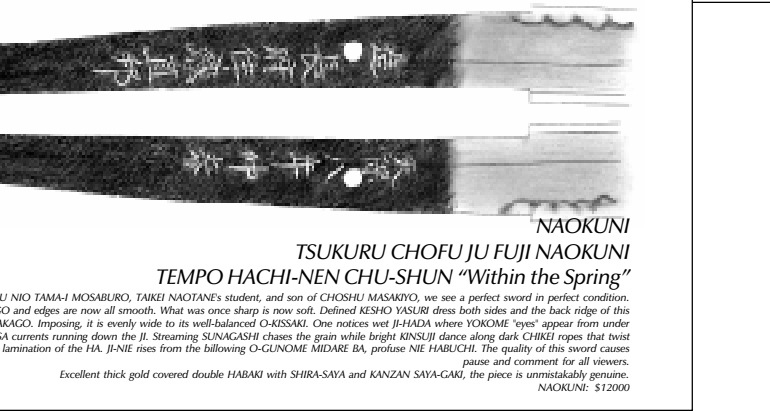 NAOKUNI
TSUKURU CHOFU JU FUJI NAOKUNI
TEMPO HACHI-NEN CHU-SHUN “Within the Spring”
U NIO TAMA-I MOSABURO, TAIKEI NAOTANE's student, and son of CHOSHU MASAKIYO, we see a perfect sword in perfect condition.
GO and edges are now all smooth. What was once sharp is now soft. Defined KESHO YASURI dress both sides and the back ridge of this
AKAGO. Imposing, it is evenly wide to its well-balanced O-KISSAKI. One notices wet JI-HADA where YOKOME "eyes" appear from under
SA currents running down the JI. Streaming SUNAGASHI chases the grain while bright KINSUJI dance along dark CHIKEI ropes that twist
lamination of the HA. JI-NIE rises from the billowing O-GUNOME MIDARE BA, profuse NIE HABUCHI. The quality of this sword causes
pause and comment for all viewers.
Excellent thick gold covered double HABAKI with SHIRA-SAYA and KANZAN SAYA-GAKI, the piece is unmistakably genuine.
NAOKUNI: $12000